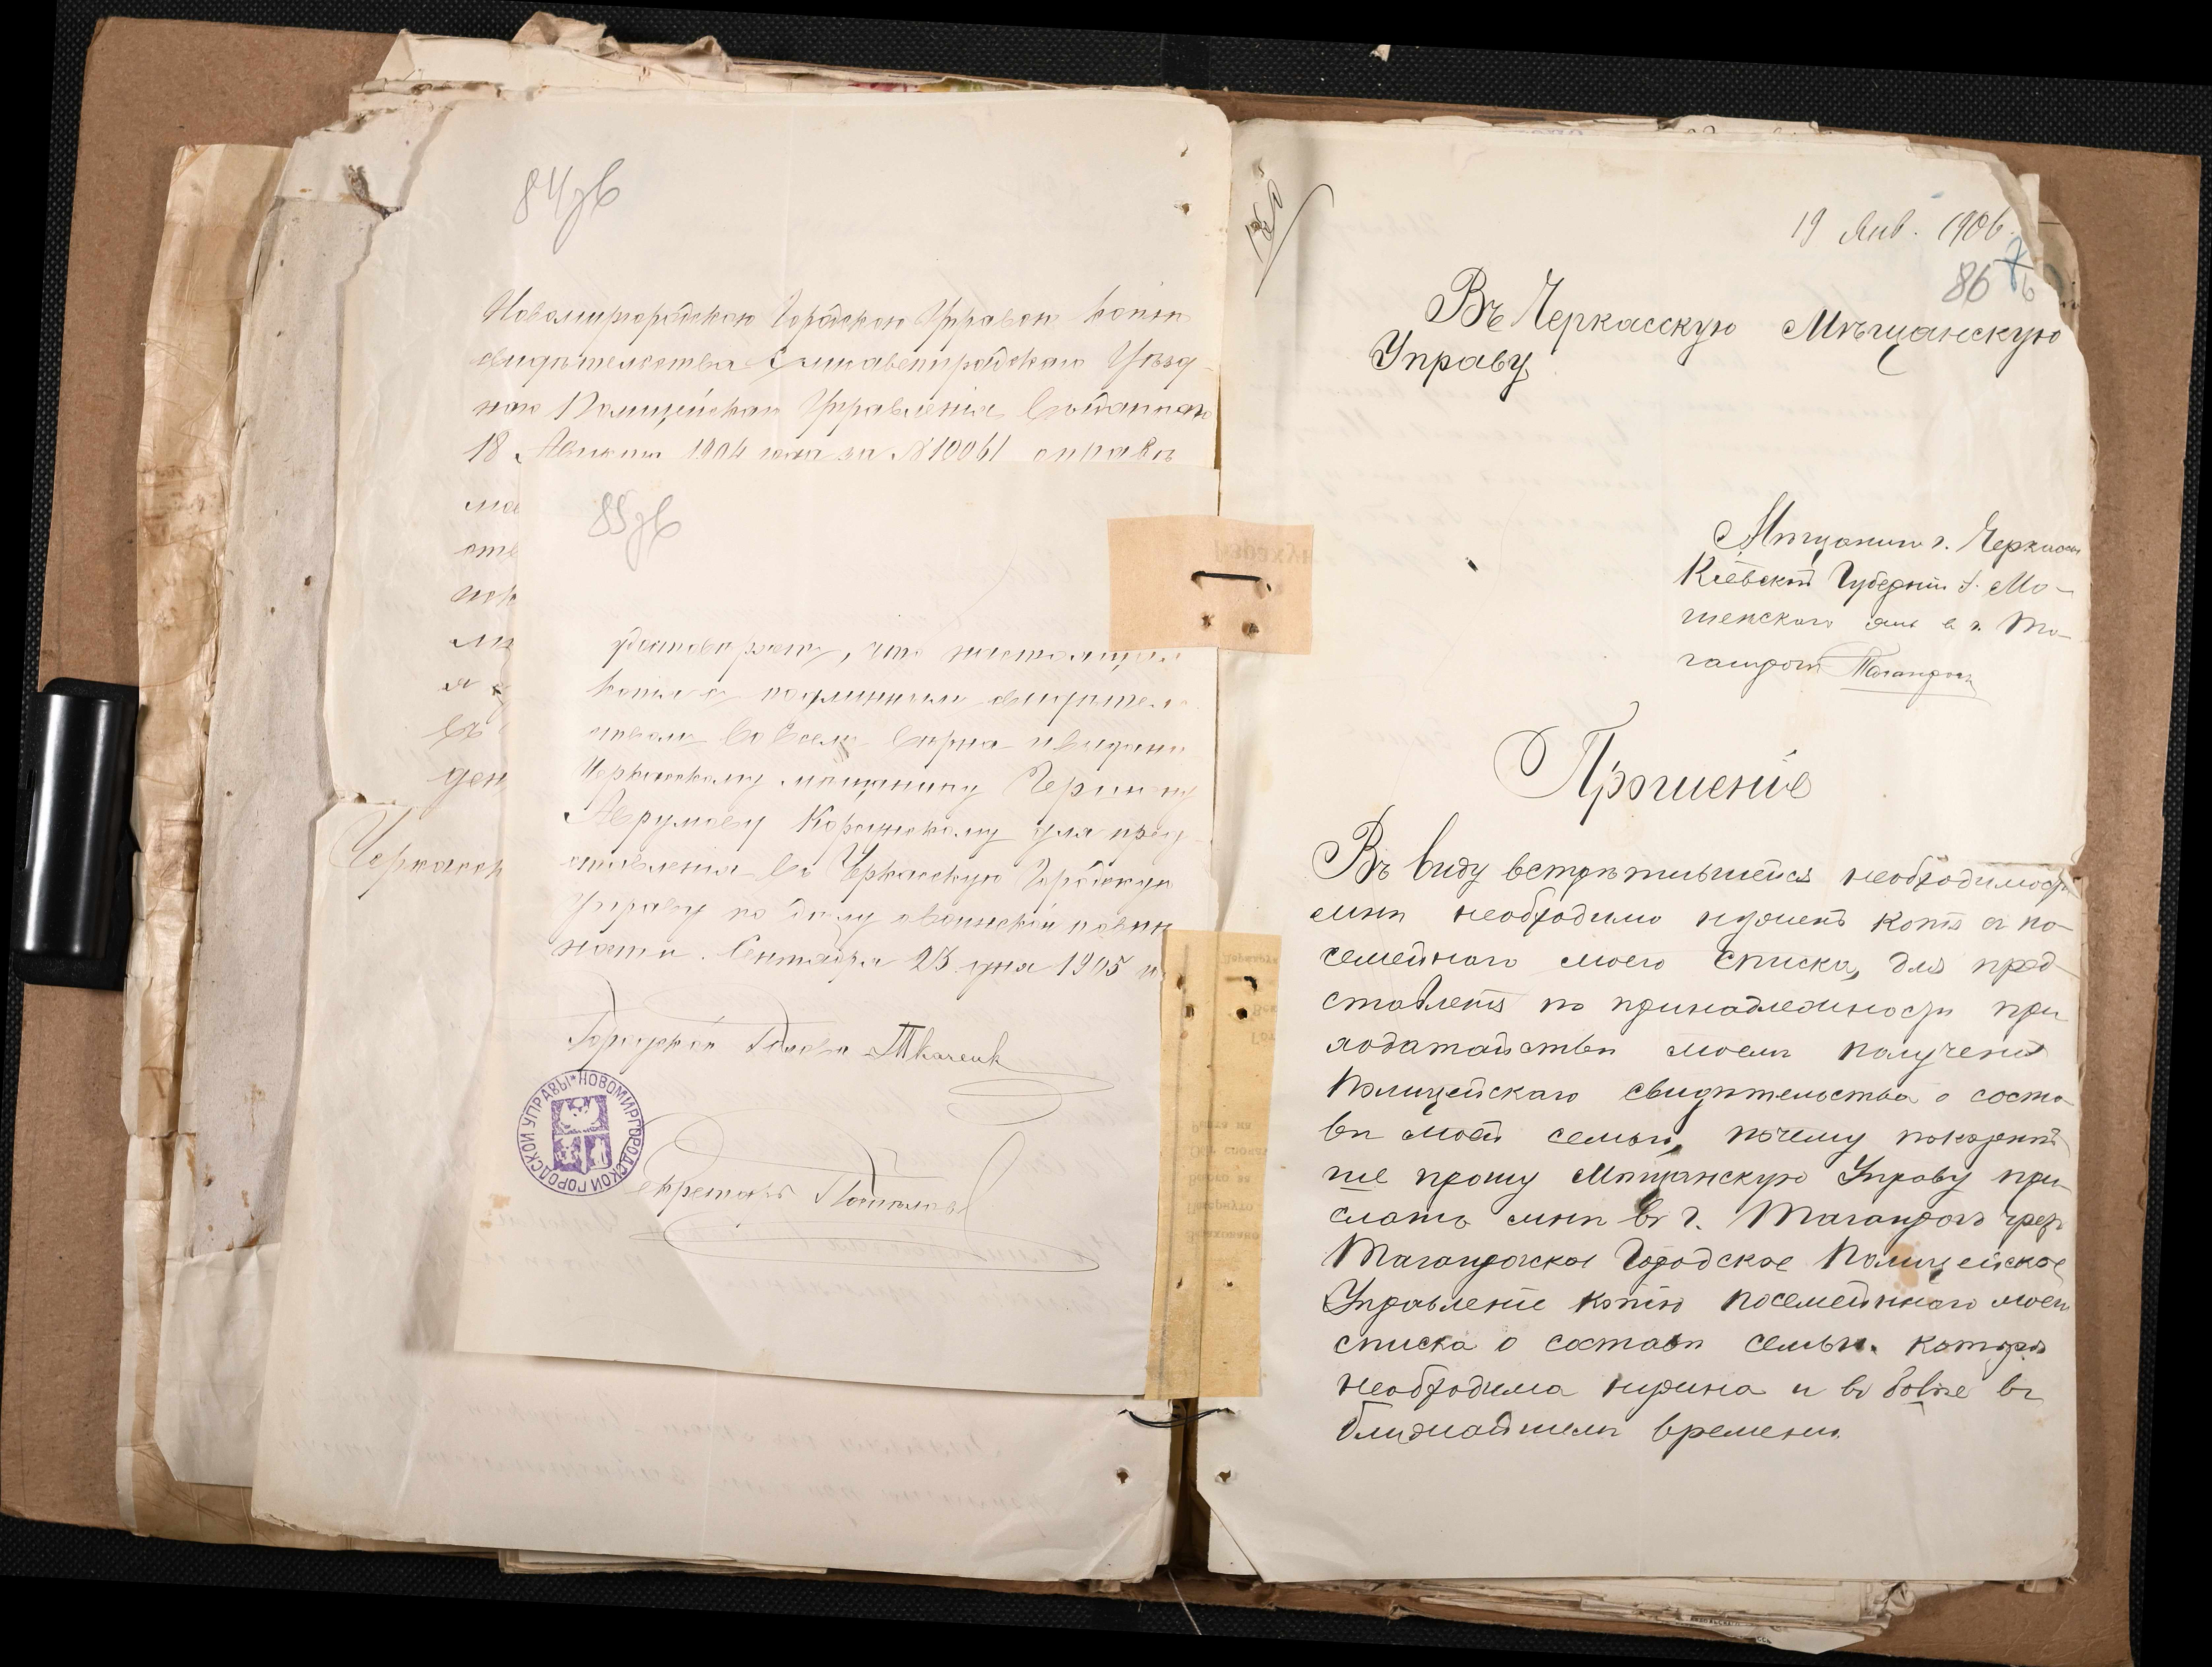 84зв
Новомиргородскою Городскою Управою копiи
свидѣтельства Елисаветградскаго Уѣзд-
наго Полицейскаго Управленiя выданнаго
18 Августа 1904 года за №10061
Черкасск
85зв
что настоящая
копiя съ подлиннымъ свидѣтель
ствомъ во всемъ вѣрна и выдана
Черкасскому мѣщанину Герш
Аврумову Корсунскому для пред
ставленiя въ Черкасскую Городскую
Управу по дѣлу о воинской повин
ности. Сентября 23 дня 1905 г.
Городской Голова Ткаченк
НОВОМИРГОРОДСКОЙ ГОРОДСКОЙ УПРАВЫ
Секретарь
19 Янв. 1906.
86
Въ Черкасскую Мѣщанскую
Управу
Мѣщанина г. Черкассъ
Кiевской Губернiи
г. Та-
ганрогѣ Таганрогъ
Прошенiе
Въ виду встрѣтившейся необходимости
мнѣ необходимо копiя съ по-
семейнаго моего списка, для пред-
ставленiя по принадлежности при
ходатайствѣ моемъ полученiя
Полицейскаго свидѣтельства о соста-
вѣ моей семьи, почему покорнѣй
ше прошу Мѣщанскую Управу при-
слать мнѣ въ г. Таганрогъ чрезъ
Таганрогское Городское Полицейское
Управленiе копiю посемейнаго моего
списка о составѣ семьи. которая
необходима нужна и въ
ближайшемъ времени.